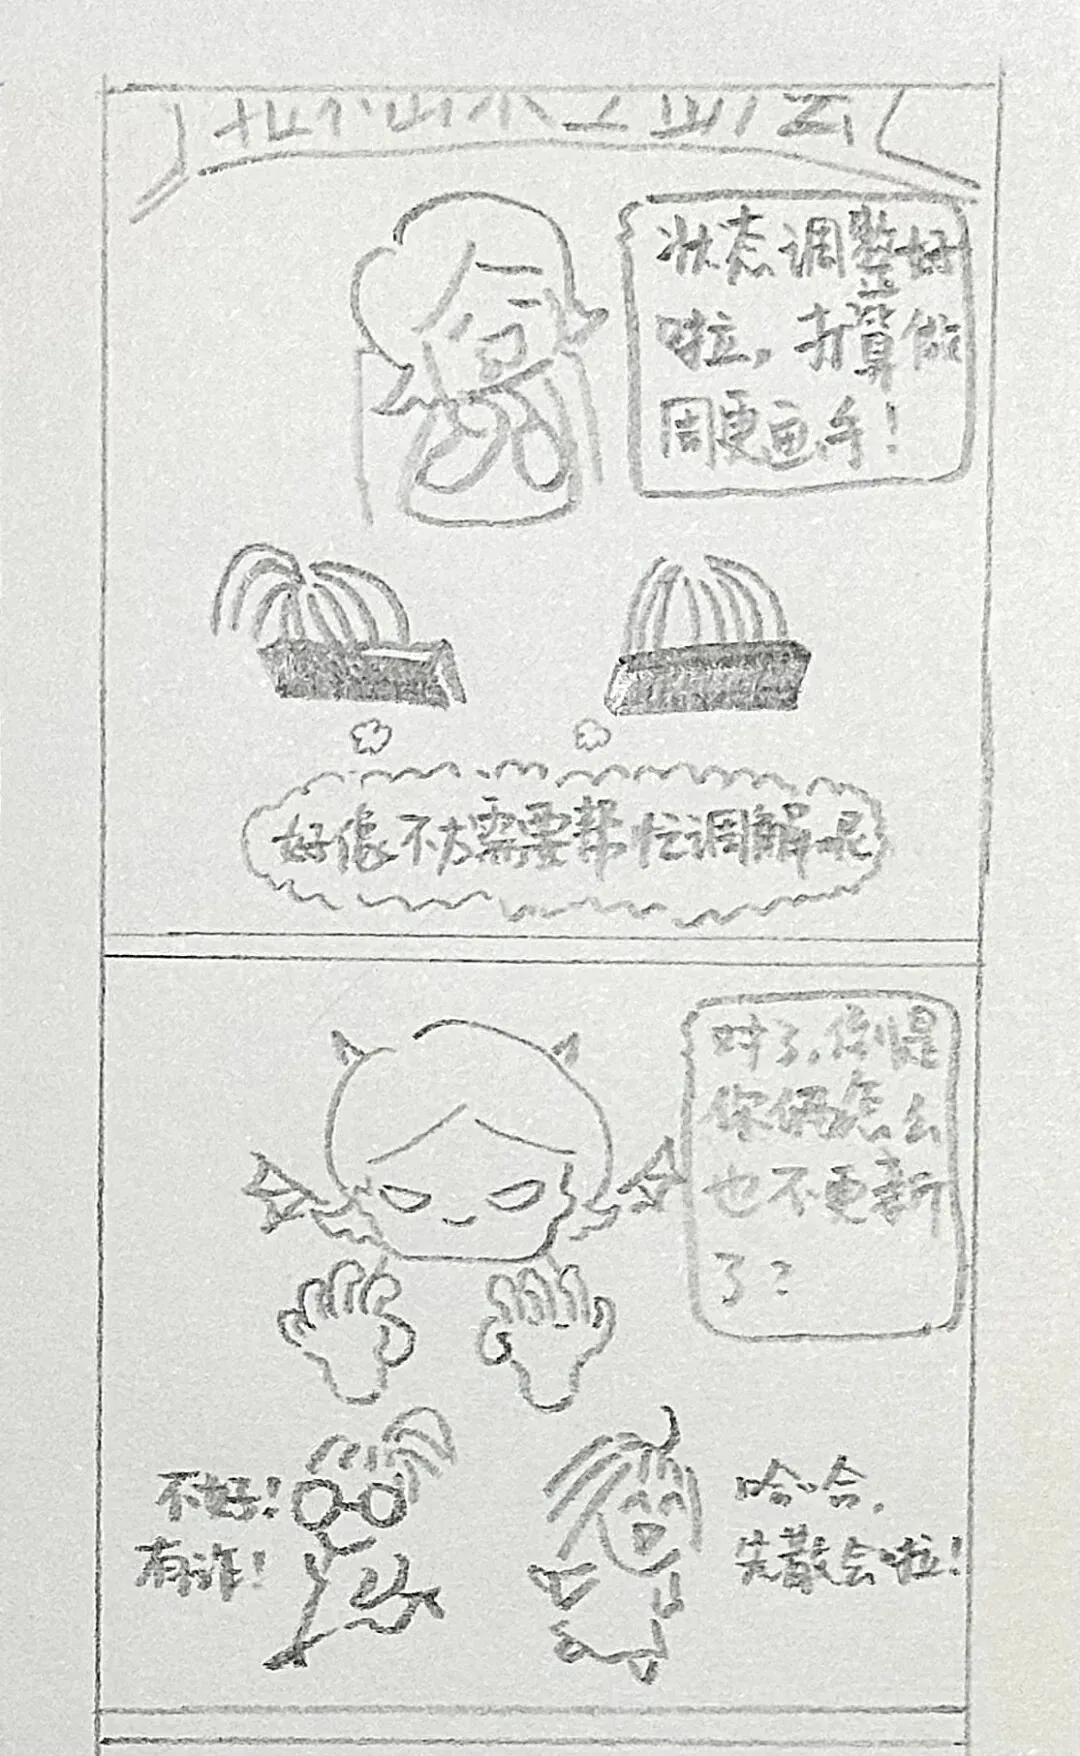 状态调整好
啦，打算做
周更画手！
好像不太需要帮忙调解呢
对了，倒是
你俩怎么
也不更新
了？
不好！
有诈！
哈哈，
先散会啦！